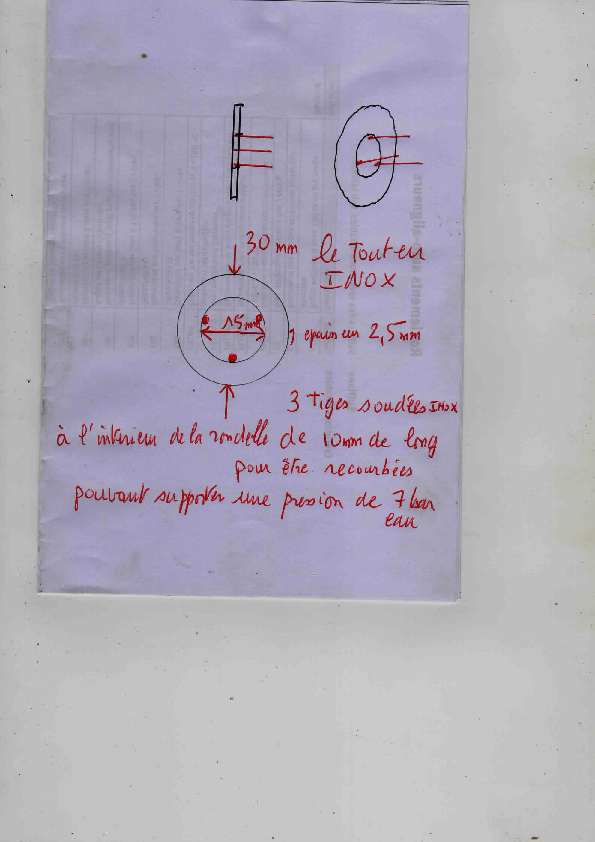 30 mm le Tout en
INOX
15 mm
epaisseur 2,5 mm
3 Tiges soudées INOX
à l'intérieur de la rondelle de 10 mm de long
pour être recourbées
pouvant supporter une pression de 7 bar
eau